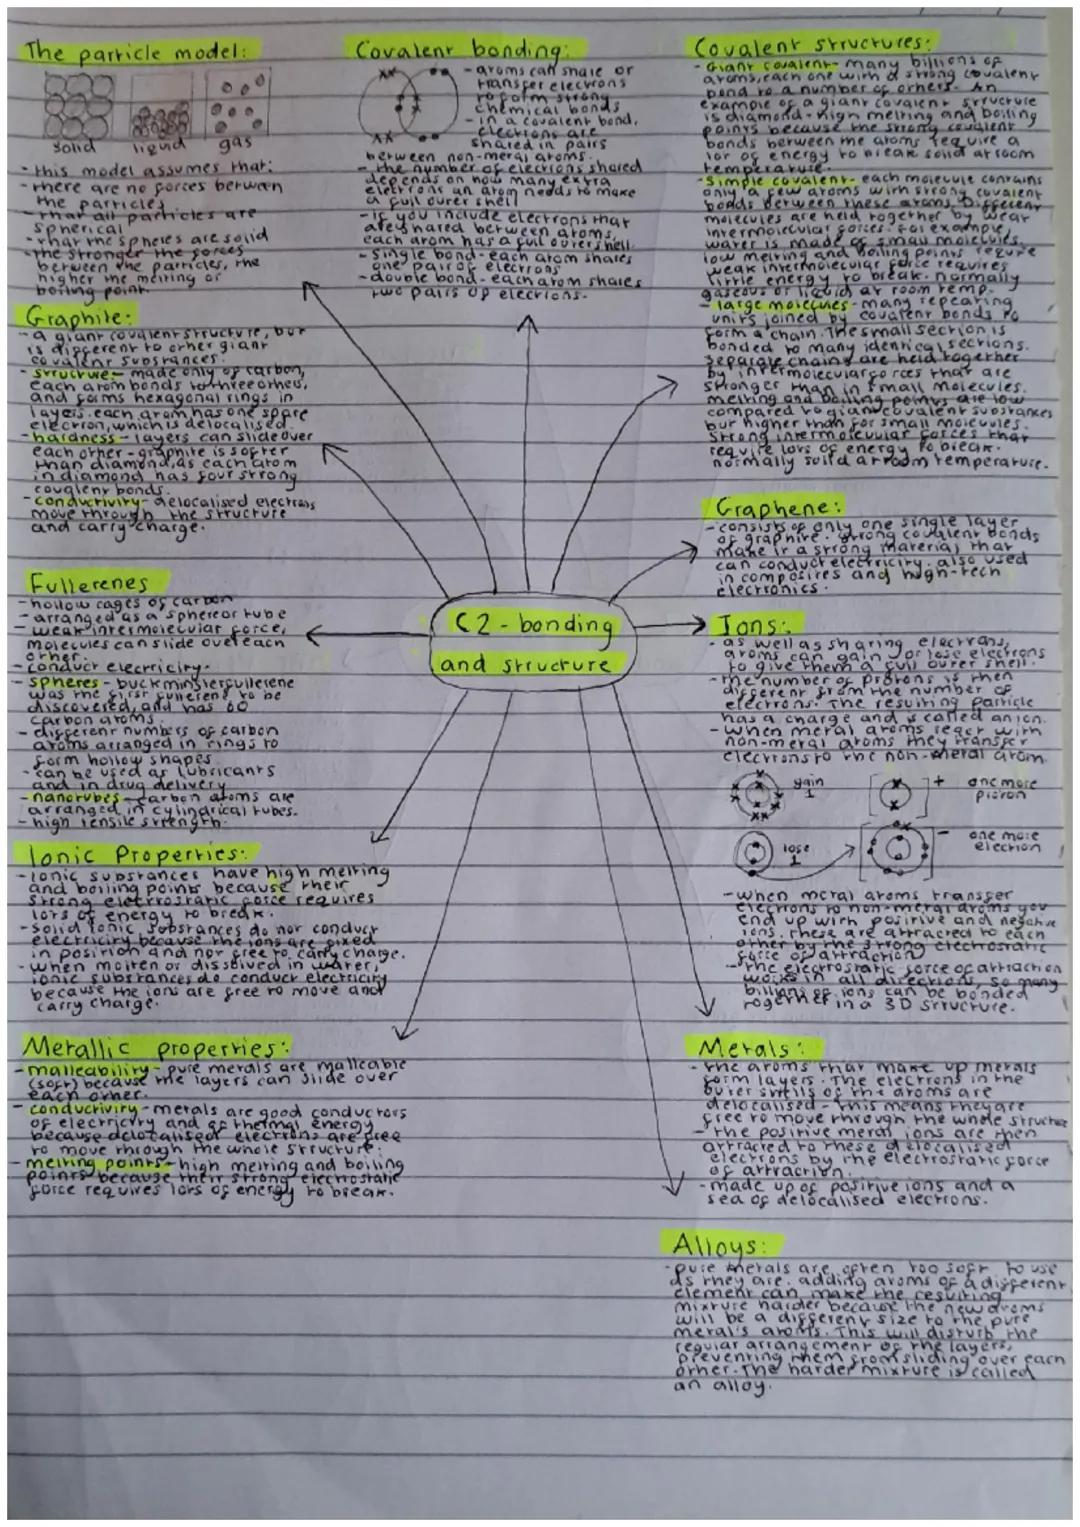 The particle model:
solid liquid gas
- this model assumes that:
- there are no forces between
the particles
- that all particles are
spherical
- that the spheres are solid
- the stronger the forces
between the particles, the
higher the melting or
boiling point.
Graphite:
- a giant covalent structure, but
is different to other giant
covalent substances.
- structure - made only of carbon,
each atom bonds to three others,
and forms hexagonal rings in
layers. each atom has one spare
electron, which is delocalised.
- hardness - layers can slide over
each other - graphite is softer
than diamond, as each atom
in diamond has four strong
covalent bonds.
- conductivity - delocalised electrons
move through the structure
and carry charge.
Fullerenes
- hollow cages of carbon
- arranged as a sphere or tube
- weak intermolecular force,
molecules can slide over each
other.
- conduct electricity.
- spheres - buckminsterfullerene
was the first fullerene to be
discovered, and has 60
carbon atoms.
- different numbers of carbon
atoms arranged in rings to
form hollow shapes
- can be used as lubricants
and in drug delivery
- nanotubes - carbon atoms are
arranged in cylindrical tubes.
- high tensile strength.
Ionic Properties:
- ionic substances have high melting
and boiling points because their
strong electrostatic force requires
lots of energy to break.
- solid ionic substances do not conduct
electricity because the ions are fixed
in position and not free to carry charge.
- when molten or dissolved in water,
ionic substances do conduct electricity
because the ions are free to move and
carry charge.
Metallic properties:
- malleability - pure metals are malleable
(soft) because the layers can slide over
each other.
- conductivity - metals are good conductors
of electricity and of thermal energy
because delocalised electrons are free
to move through the whole structure.
- melting points - high melting and boiling
points because their strong electrostatic
force requires lots of energy to break.
Covalent bonding:
- atoms can share or
transfer electrons
to form strong
chemical bonds
- in a covalent bond,
electrons are
shared in pairs
between non-metal atoms.
- the number of electrons shared
depends on how many extra
electrons an atom needs to make
a full outer shell
- if you include electrons that
are shared between atoms,
each atom has a full outer shell.
- single bond - each atom shares
one pair of electrons
- double bond - each atom shares
two pairs of electrons.
C2 - bonding
and structure
Covalent structures:
- Giant covalent - many billions of
atoms, each one with a strong covalent
bond to a number of others. An
example of a giant covalent structure
is diamond - high melting and boiling
points because the strong covalent
bonds between the atoms require a
lot of energy to break solid at room
temperature.
- Simple covalent - each molecule contains
only a few atoms with strong covalent
bonds between these atoms. Different
molecules are held together by weak
intermolecular forces. For example,
water is made of small molecules.
low melting and boiling points
weak intermolecular force requires
little energy to break. normally
gaseous or liquid at room temp.
- large molecules - many repeating
units joined by covalent bonds to
form a chain. The small section is
bonded to many identical sections.
separate chains are held together
by intermolecular forces that are
stronger than in small molecules.
melting and boiling points are low
compared to giant covalent substances
but higher than for small molecules.
strong intermolecular forces that
require lots of energy to break.
normally solid at room temperature.
Graphene:
- consists of only one single layer
of graphite. strong covalent bonds
make it a strong material that
can conduct electricity. also used
in composites and high-tech
electronics.
Ions:
- as well as sharing electrons,
atoms can gain or lose electrons
to give them a full outer shell.
- the number of protons is then
different from the number of
electrons. The resulting particle
has a charge and is called an ion.
- when metal atoms react with
non-metal atoms they transfer
electrons to the non-metal atom.
gain
1
+ one more
proton
lose
1
- one more
electron
- when metal atoms transfer
electrons to non-metal atoms you
end up with positive and negative
ions. these are attracted to each
other by the strong electrostatic
force of attraction
- the electrostatic force of attraction
works in all directions, so many
billions of ions can be bonded
together in a 3D structure.
Metals:
- the atoms that make up metals
form layers. The electrons in the
outer shells of the atoms are
delocalised - this means they are
free to move through the whole structure
- the positive metal ions are then
attracted to these delocalised
electrons by the electrostatic force
of attraction.
- made up of positive ions and a
sea of delocalised electrons.
Alloys:
- pure metals are often too soft to use
as they are. adding atoms of a different
element can make the resulting
mixture harder because the new atoms
will be a different size to the pure
metal's atoms. This will disturb the
regular arrangement of the layers,
preventing them from sliding over each
other. The harder mixture is called
an alloy.